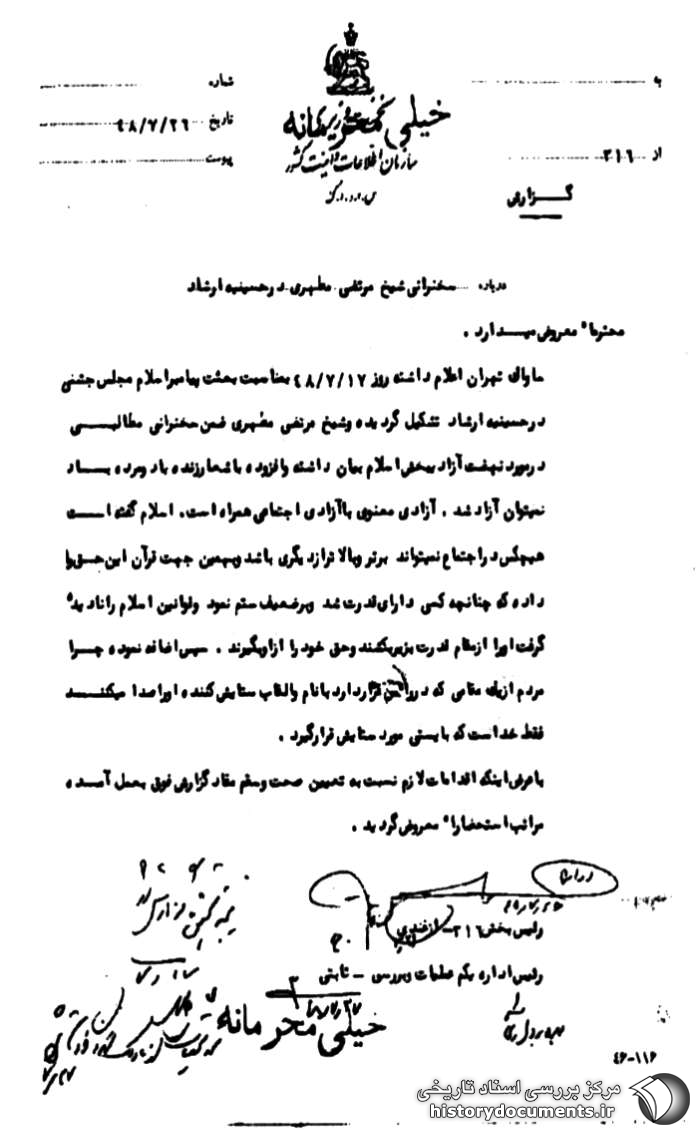 به
شماره
خیلی محرمانه
نخست وزیری
تاریخ ۴۸/۷/۲۶
سازمان اطلاعات و امنیت کشور
از ۳۱۶
پیوست
س.ا.و.ا.ک
گزارش
درباره سخنرانی شیخ مرتضی مطهری در حسینیه ارشاد
محترماً معروض میدارد .
ساواک تهران اعلام داشته روز ۴۸/۷/۱۷ بمناسبت بعثت پیامبر اسلام مجلس جشنی
در حسینیه ارشاد تشکیل گردیده و شیخ مرتضی مطهری ضمن سخنرانی مطالبی
در مورد نهضت آزاد ببخش اسلام بیان داشته و افزوده با شعار زنده باد و مرده باد
نمیتوان آزاد شد . آزادی معنوی با آزادی اجتماعی همراه است. اسلام گفته است
هیچکس در اجتماع نمیتواند برتر و بالاتر از دیگری باشد و بهمین جهت قرآن این حق را
داده که چنانچه کسی دارای قدرت شد و بر ضعیف ستم نمود و قوانین اسلام را نادیده
گرفت او را از مقام قدرت بزیر بکشند و حق خود را از او بگیرند . سپس اضافه نموده چرا
مردم از یک مقامی که در رأس قرار دارد با نام و القاب ستایش کننده او را صدا میکنند
فقط خداست که بایستی مورد ستایش قرار گیرد .
با عرض اینکه اقدامات لازم نسبت به تعیین صحت و سقم مفاد گزارش فوق بعمل آمده
مراتب استحضاراً معروض گردید .
رئیس بخش ۳۱۶- ازغندی
رئیس اداره یکم عملیات و بررسی - ثابتی
خیلی محرمانه
۴۶-۱۱۶
مرکز بررسی اسناد تاریخی
historydocuments.ir